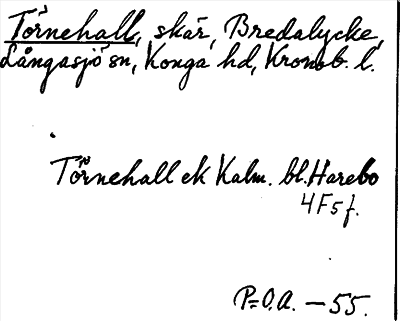 Törnehall, skär, Bredalycke,
Långasjö sn, Konga hd, Kronob. l.
Törnehall ek Kalm. bl. Harebo
4F5f.
P-O.A. - 55.